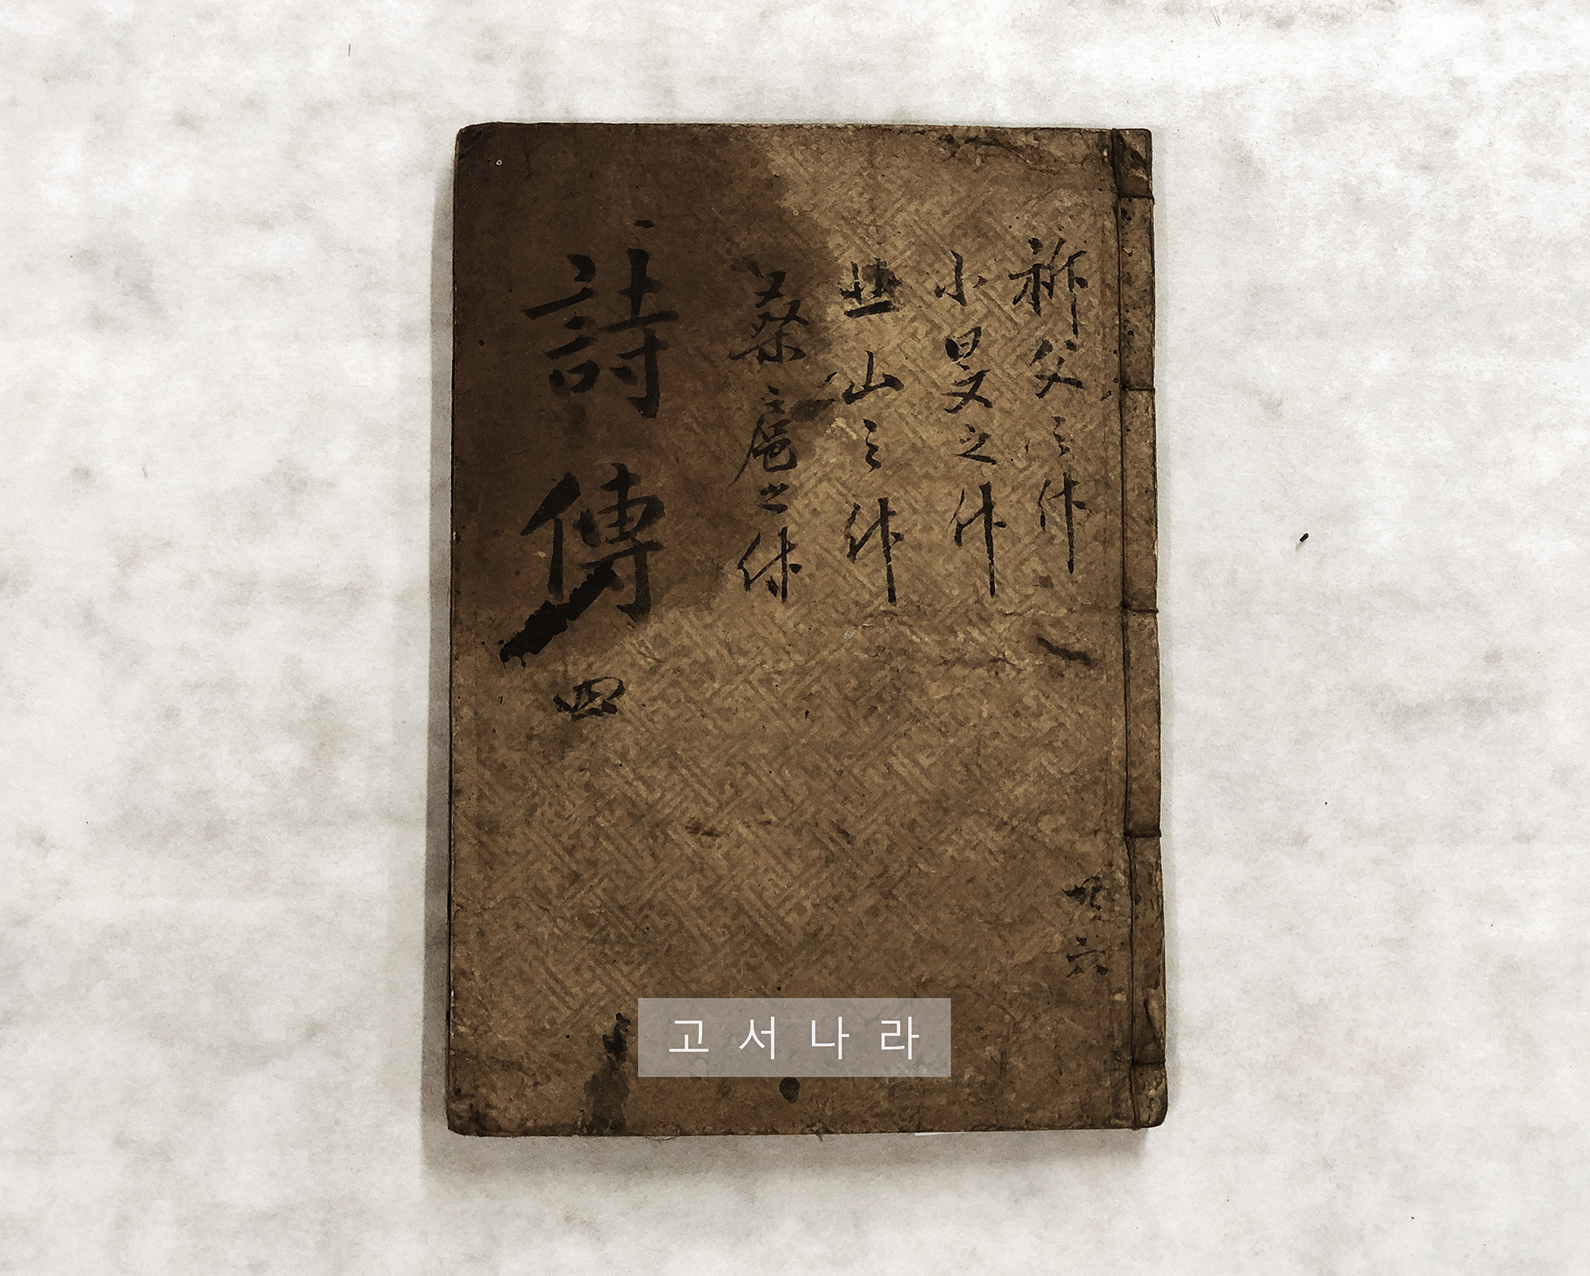 祈父之什
小旻之什
北山之什
桑扈之什
詩傳 四
共六
고서나라